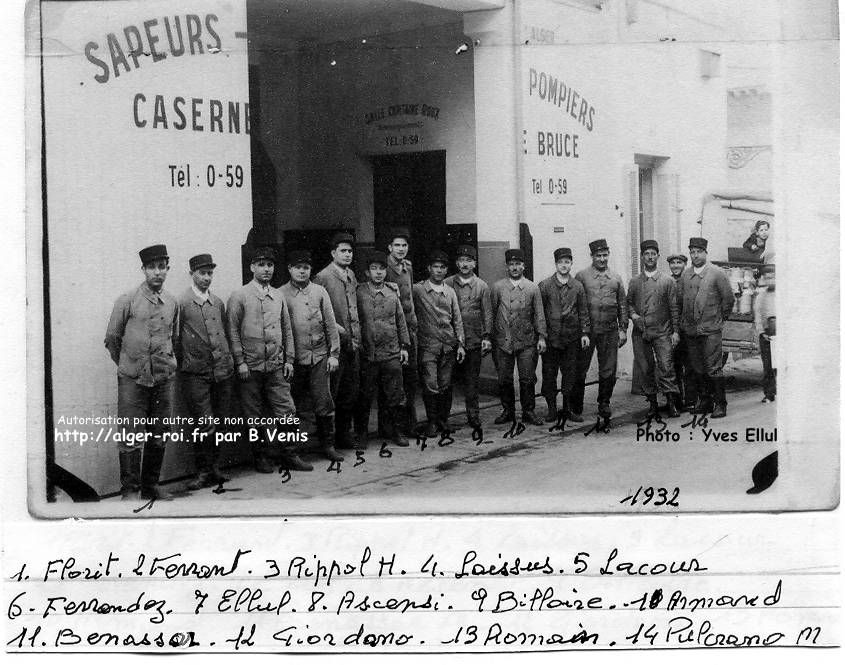 SAPEURS -
CASERNE
Tèl : 0-59
SALLE CAPITAINE ROUX
TÈL. 0-59
ALGER
POMPIERS
E BRUCE
Tèl 0-59
Autorisation pour autre site non accordée
http://alger-roi.fr par B.Venis
Photo : Yves Ellul
1 2 3 4 5 6 7 8 9 10 11 12 13 14
1932
1. Florit. 2 Ferrant. 3 Rippol H. 4. Loissus. 5 Lacour
6- Ferrandez. 7 Ellul. 8. Ascensi. 9 Billoire. 10 Armand
11. Benassar. 12 Giordano. 13 Romain. 14 M